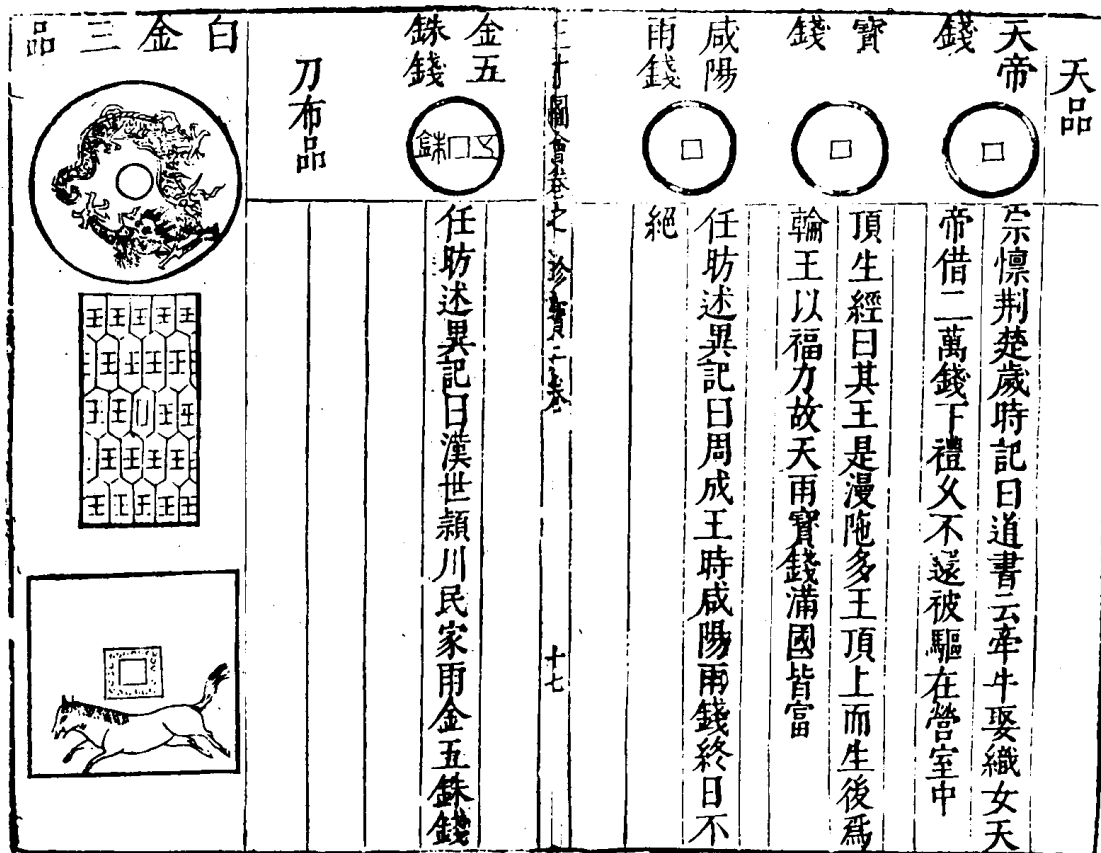 天品
天帝
錢
宗懔荆楚歲時記曰道書云牽牛娶織女天
帝借二萬錢下禮久不還被驅在營室中
寳
錢
頂生經曰其王是漫陁多王頂上而生後爲
輪王以福力故天雨寳錢滿國皆富
咸陽
雨錢
任昉述異記曰周成王時咸陽雨錢終日不
絕
三才圖會卷之 珍寳二卷
十七
金五
銖錢
五銖
任昉述異記曰漢世潁川民家雨金五銖錢
刀布品
白金三品
王王王王王
王王王王
王王王王
王王王王
王王王王王